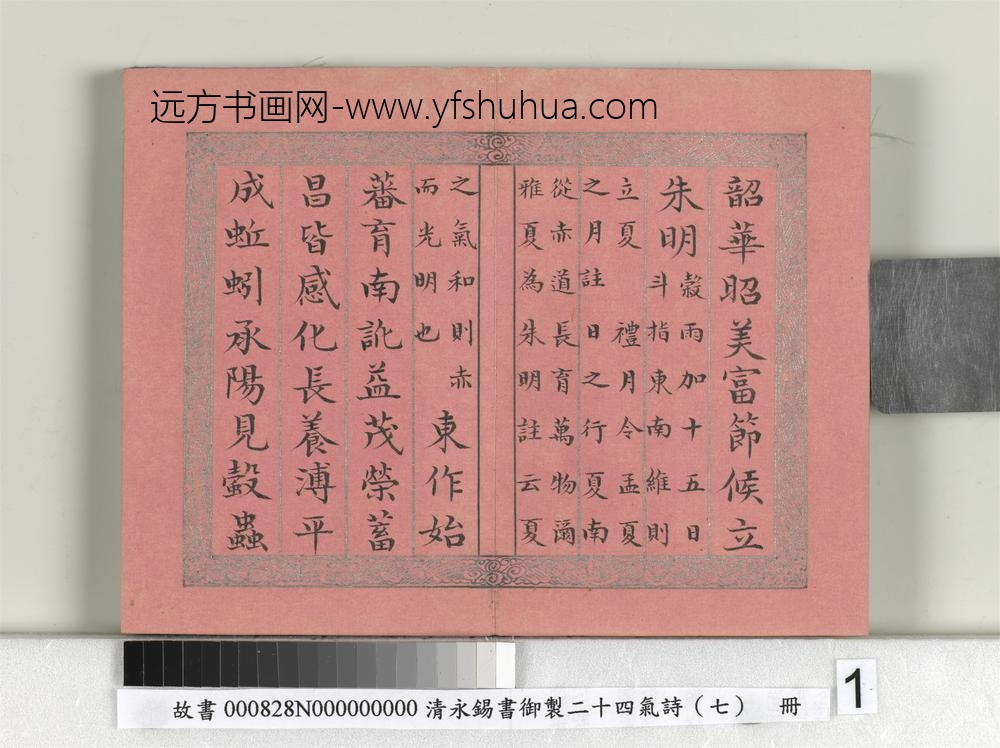 远方书画网-www.yfshuhua.com
韶華昭美富節候立
朱明
穀雨加十五日
斗指東南維則
立夏 禮月令孟夏
之月註日之行夏南
從赤道長育萬物爾
雅夏為朱明註云夏
之氣和則赤
而光明也
東作始
蕃育南訛益茂榮蓄
昌皆感化長養溥平
成蚯蚓承陽見螜蟲
故書 000828N000000000 清永錫書御製二十四氣詩（七） 冊
1